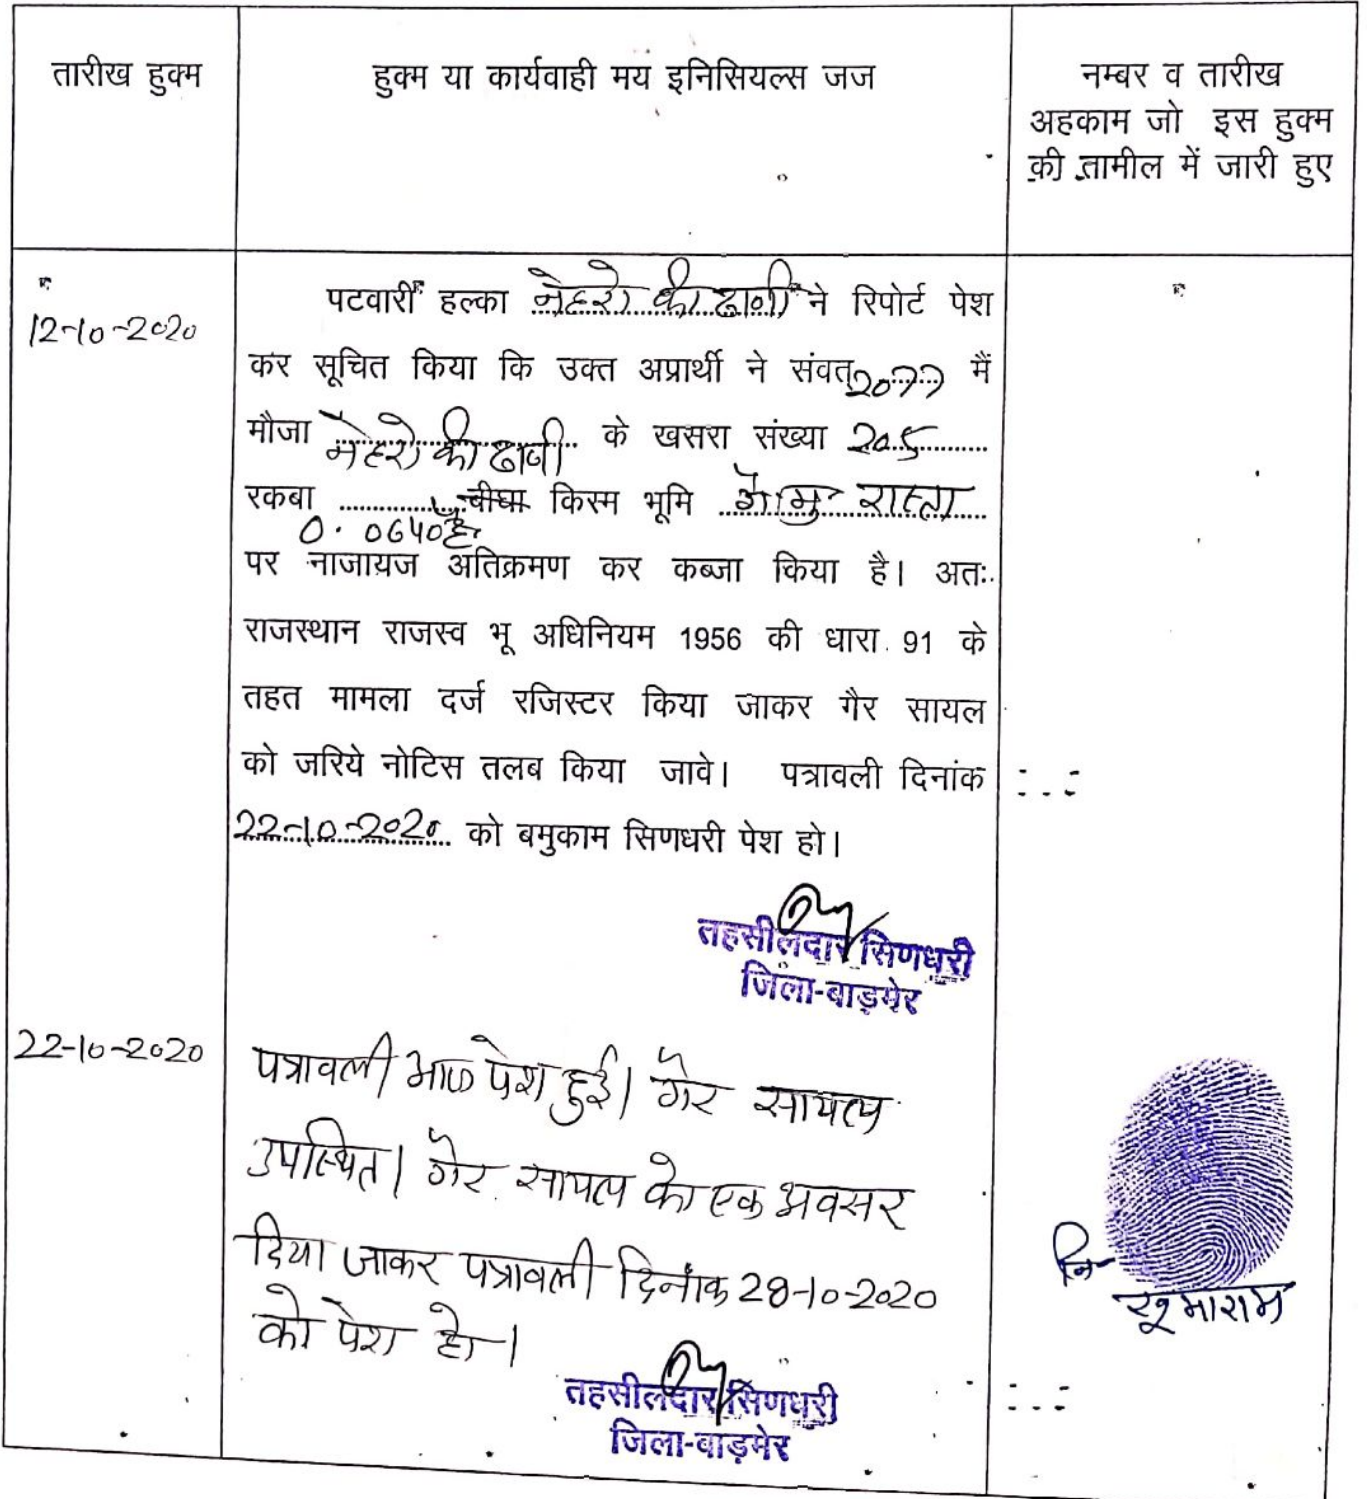 तारीख हुक्म
हुक्म या कार्यवाही मय इनिसियल्स जज
नम्बर व तारीख
अहकाम जो इस हुक्म
की तामील में जारी हुए
12-10-2020
पटवारी हल्का नेहरो की ढाणी ने रिपोर्ट पेश
कर सूचित किया कि उक्त अप्रार्थी ने संवत् 2077 मैं
मौजा नेहरो की ढाणी के खसरा संख्या 205
रकबा बीघा किस्म भूमि गै मु रास्ता
0.0640 है
पर नाजायज अतिक्रमण कर कब्जा किया है। अतः
राजस्थान राजस्व भू अधिनियम 1956 की धारा 91 के
तहत मामला दर्ज रजिस्टर किया जाकर गैर सायल
को जरिये नोटिस तलब किया जावे। पत्रावली दिनांक
22-10-2020 को बमुकाम सिणधरी पेश हो।
तहसीलदार सिणधरी
जिला-बाड़मेर
22-10-2020
पत्रावली आज पेश हुई। गैर सायल
उपस्थित। गैर सायल को एक अवसर
दिया जाकर पत्रावली दिनांक 28-10-2020
को पेश हो।
नि
खुमाराम
तहसीलदार सिणधरी
जिला-बाड़मेर